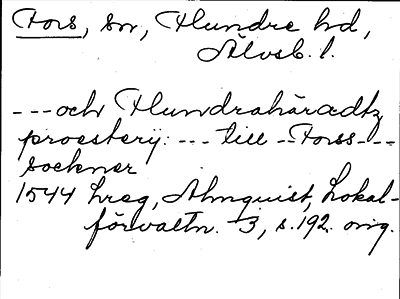 Fors, sn, Flundre hd,
Älvsb. l.
---och Flundrahäradtz
proesterij: --- till --Forss---
sockner
1544 hreg, Almquist, Lokal-
förvaltn. 3, s.192. orig.